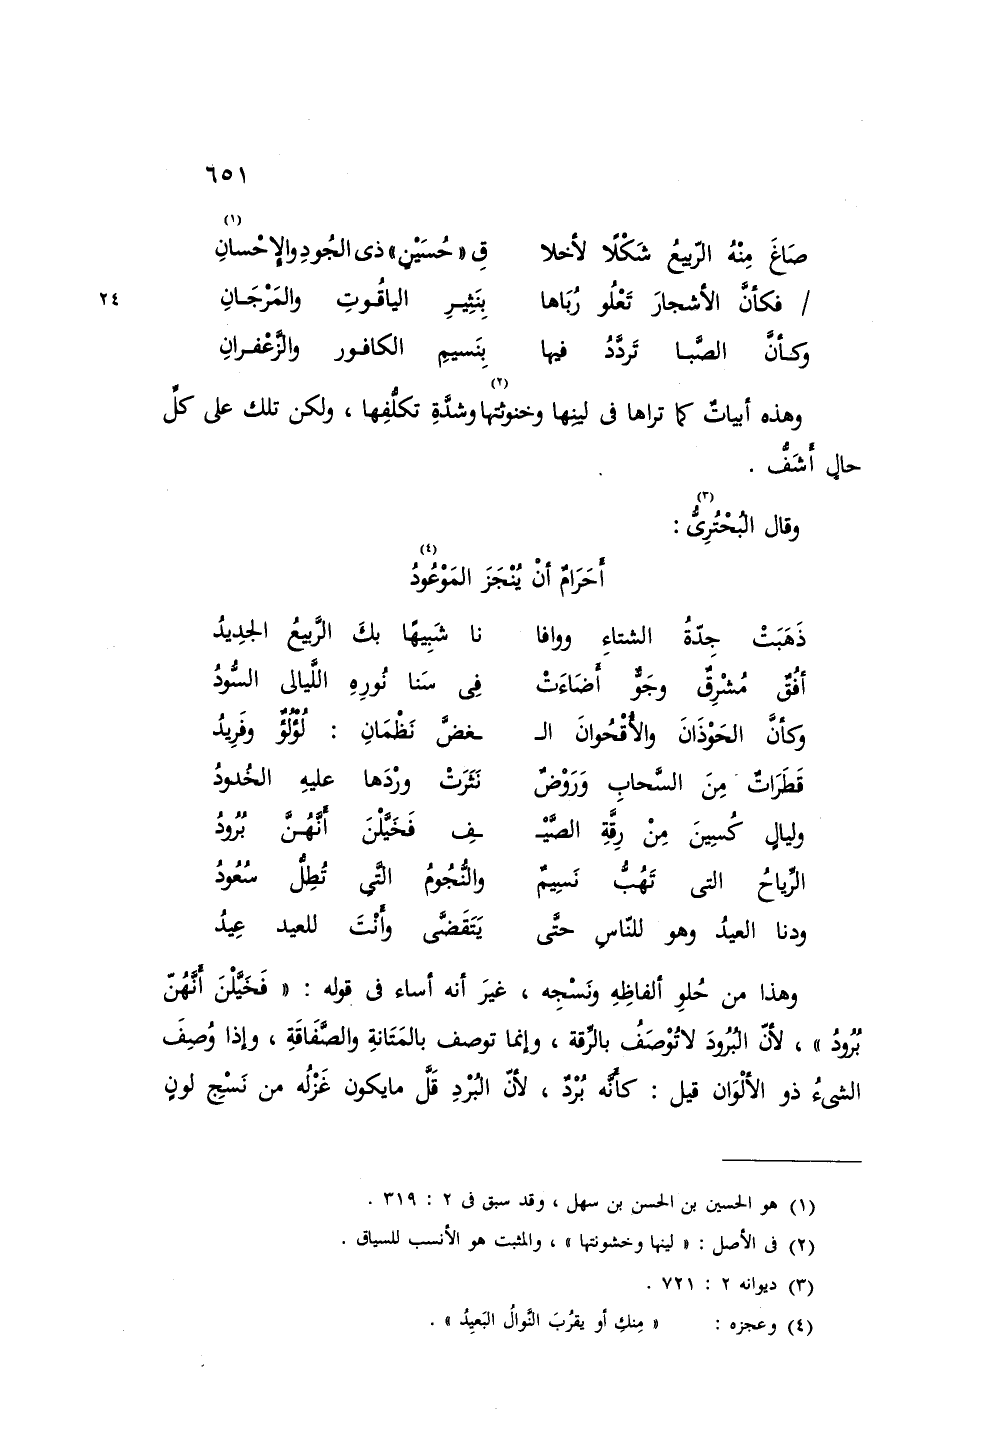 ٦٥١
صَاغَ مِنْهُ الرّبيعُ شَكْلًا لأخلا قِ « حُسَيْنٍ » ذى الجُودِ والإحْسانِ (١)
/ فكأنَّ الأشجارَ تَعْلُو رُبَاها بِنَثِيرِ الياقُوتِ والمَرْجَـانِ ٢٤
وكـأنَّ الصَّبـا تَردَّدُ فيها بِنَسيمِ الكافـور والزَّعْفـرانِ
وهذه أبياتٌ كما تراها فى لينِها وخنوثتها (٢) وشدَّةِ تكلُّفِها ، ولكن تلك على كلِّ
حالٍ أَشَفُّ .
وقال البُحْتُرِىُّ (٣) :
أَحَرَامٌ أنْ يُنْجَزَ المَوْعُودُ (٤)
ذَهَبَتْ جِدّةُ الشتاءِ ووافا نا شَبِيهًا بكَ الرَّبيعُ الجَديدُ
أفُقٌ مُشْرِقٌ وجَوٌّ أَضَاءَتْ فِى سَنا نُورِهِ اللَّيالى السّودُ
وكأنَّ الحَوْذَانَ والأُقْحُوانَ الـ ـغضَّ نَظْمَانِ : لُؤْلُؤٌ وفَرِيدُ
قَطَرَاتٌ مِنَ السَّحابِ وَرَوْضٌ نَثَرَتْ ورْدَها عليهِ الخُدودُ
وليالٍ كُسِينَ مِنْ رِقَّةِ الصَّيْـ ـفِ فَخَيَّلْنَ أَنَّهُـنَّ بُرُودُ
الرِّياحُ التى تَهُبُّ نَسِيمٌ والنُّجُومُ التَّى تُطِلُّ سُعُودُ
ودنا العيدُ وهو للنّاسِ حتَّى يَتَقَضَّى وأَنْتَ للعيد عِيدُ
وهذا من حُلوِ ألفاظِهِ ونَسْجِه ، غيرَ أنه أساء فى قوله : « فَخَيَّلْنَ أَنَّهُنّ
بُرُودُ » ، لأنّ البُرُودَ لاتُوْصَفُ بالرِّقة ، وإنما توصف بالمَتَانةِ والصَّفَاقَةِ ، وإذا وُصِفَ
الشىءُ ذو الألْوَان قيل : كأَنَّه بُرْدٌ ، لأنّ البُرْدِ قَلَّ مايكون غَزْلُه من نَسْجِ لونٍ
(١) هو الحسين بن الحسن بن سهل ، وقد سبق فى ٢ : ٣١٩ .
(٢) فى الأصل : « لينها وخشونتها » ، والمثبت هو الأنسب للسياق .
(٣) ديوانه ٢ : ٧٢١ .
(٤) وعجزه : « مِنكِ أو يقرُبَ النَّوالُ البَعيِدُ » .